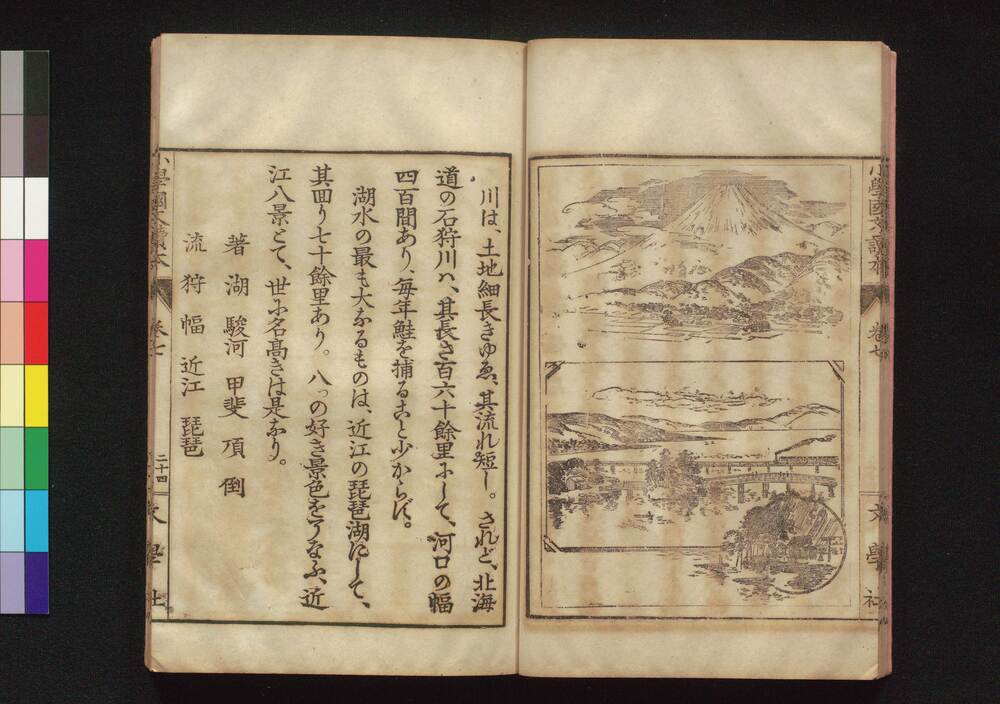 小學國文讀本
卷七
文學社
川は、土地細長きゆゑ、其流れ短し。されど、北海
道の石狩川ハ、其長さ百六十餘里にして、河口の幅
四百間あり、毎年鮭を捕ること少からず。
湖水の最も大なるものは、近江の琵琶湖にして、
其回り七十餘里あり。八つの好き景色をうなふ、近
江八景とて、世に名高きは是なり。
著 湖 駿河 甲斐 項 倒
流 狩 幅 近江 琵琶
小學國文讀本
卷七
二十四
文學社